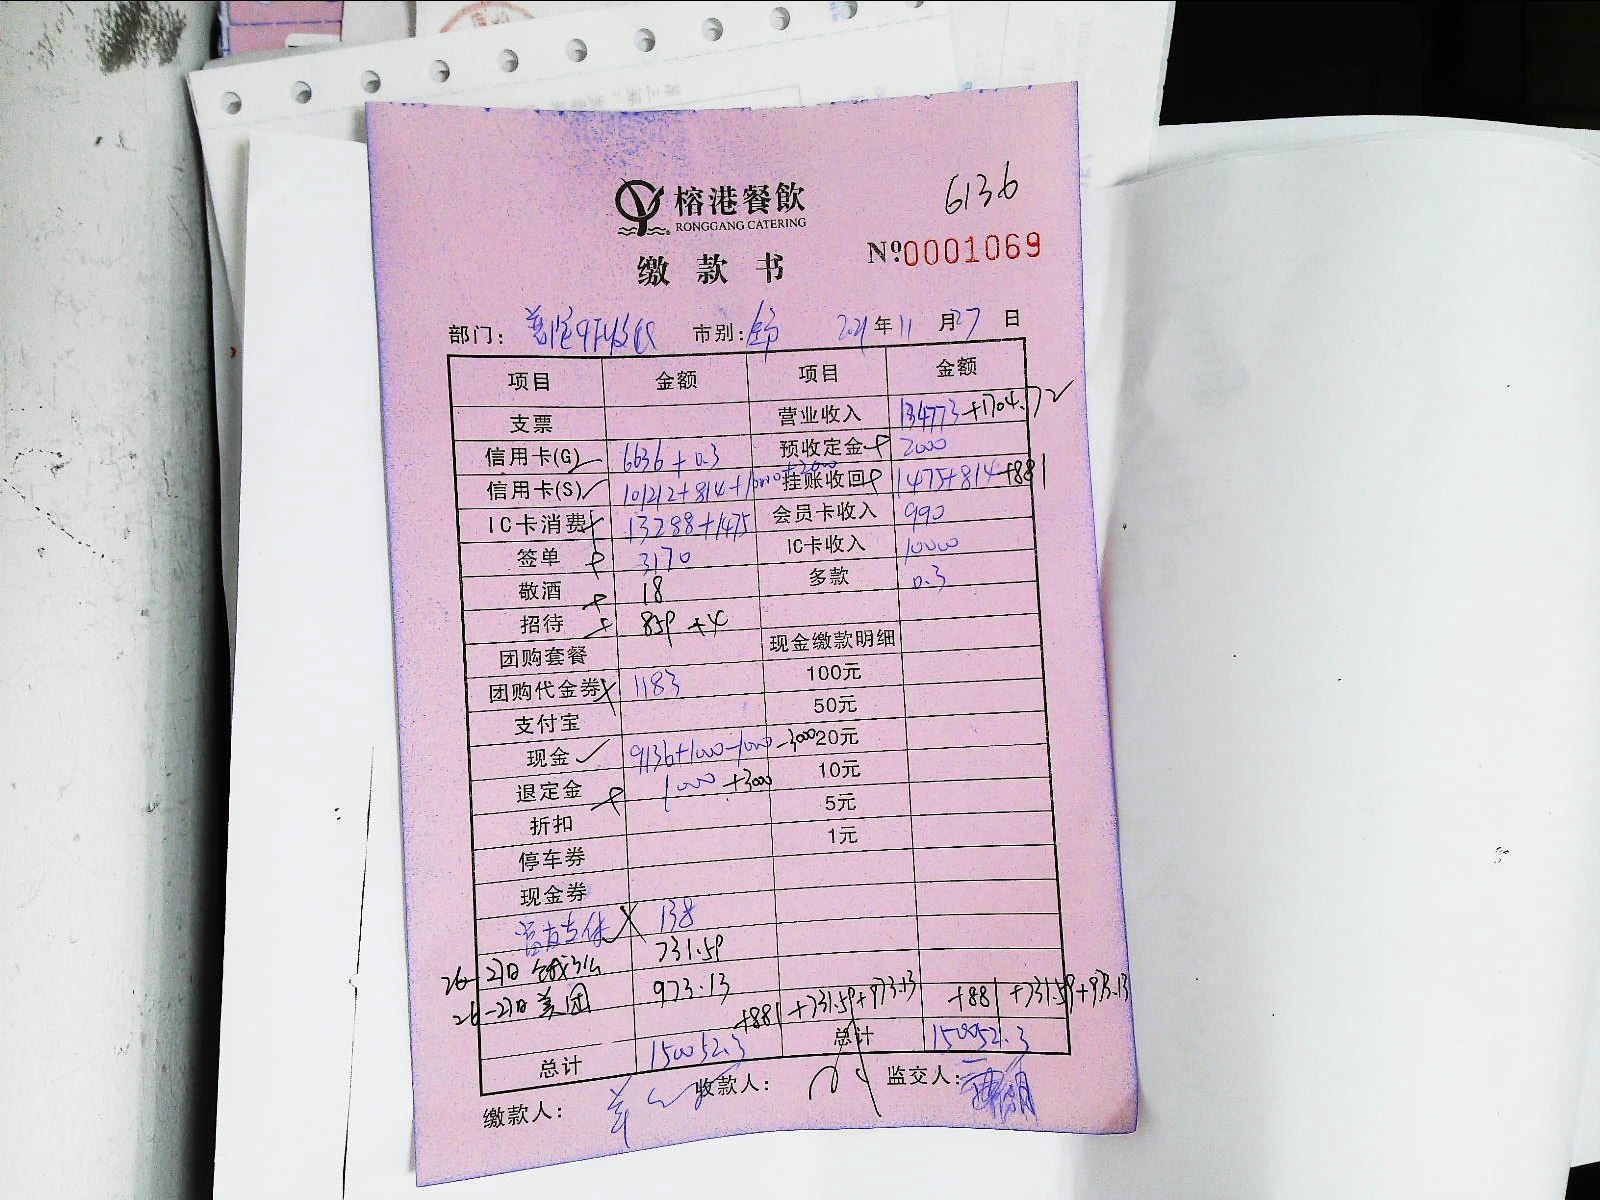 6136
榕港餐飲
RONGGANG CATERING
缴款书
Nº:0001069
部门: 市别: 2021年11月27日
项目 金额 项目 金额
支票 营业收入 134773+1704.72
信用卡(G) 6636+0.3 预收定金 2000
信用卡(S) 101212+814+10000+2000 挂账收回 1475+814+881
IC卡消费 13288+1475 会员卡收入 990
签单 3170 IC卡收入 10000
敬酒 18 多款 0.3
招待 859+4
团购套餐 现金缴款明细
团购代金券 1183 100元
支付宝 50元
现金 9136+1000-1000-3000 20元
退定金 1000+3000 10元
折扣 5元
停车券 1元
现金券
138
26-27日 731.59
26-27日美团 973.13
+881+731.59+973.13 +881+731.59+973.13
总计 150052.3 总计 150052.3
缴款人: 收款人: 监交人: